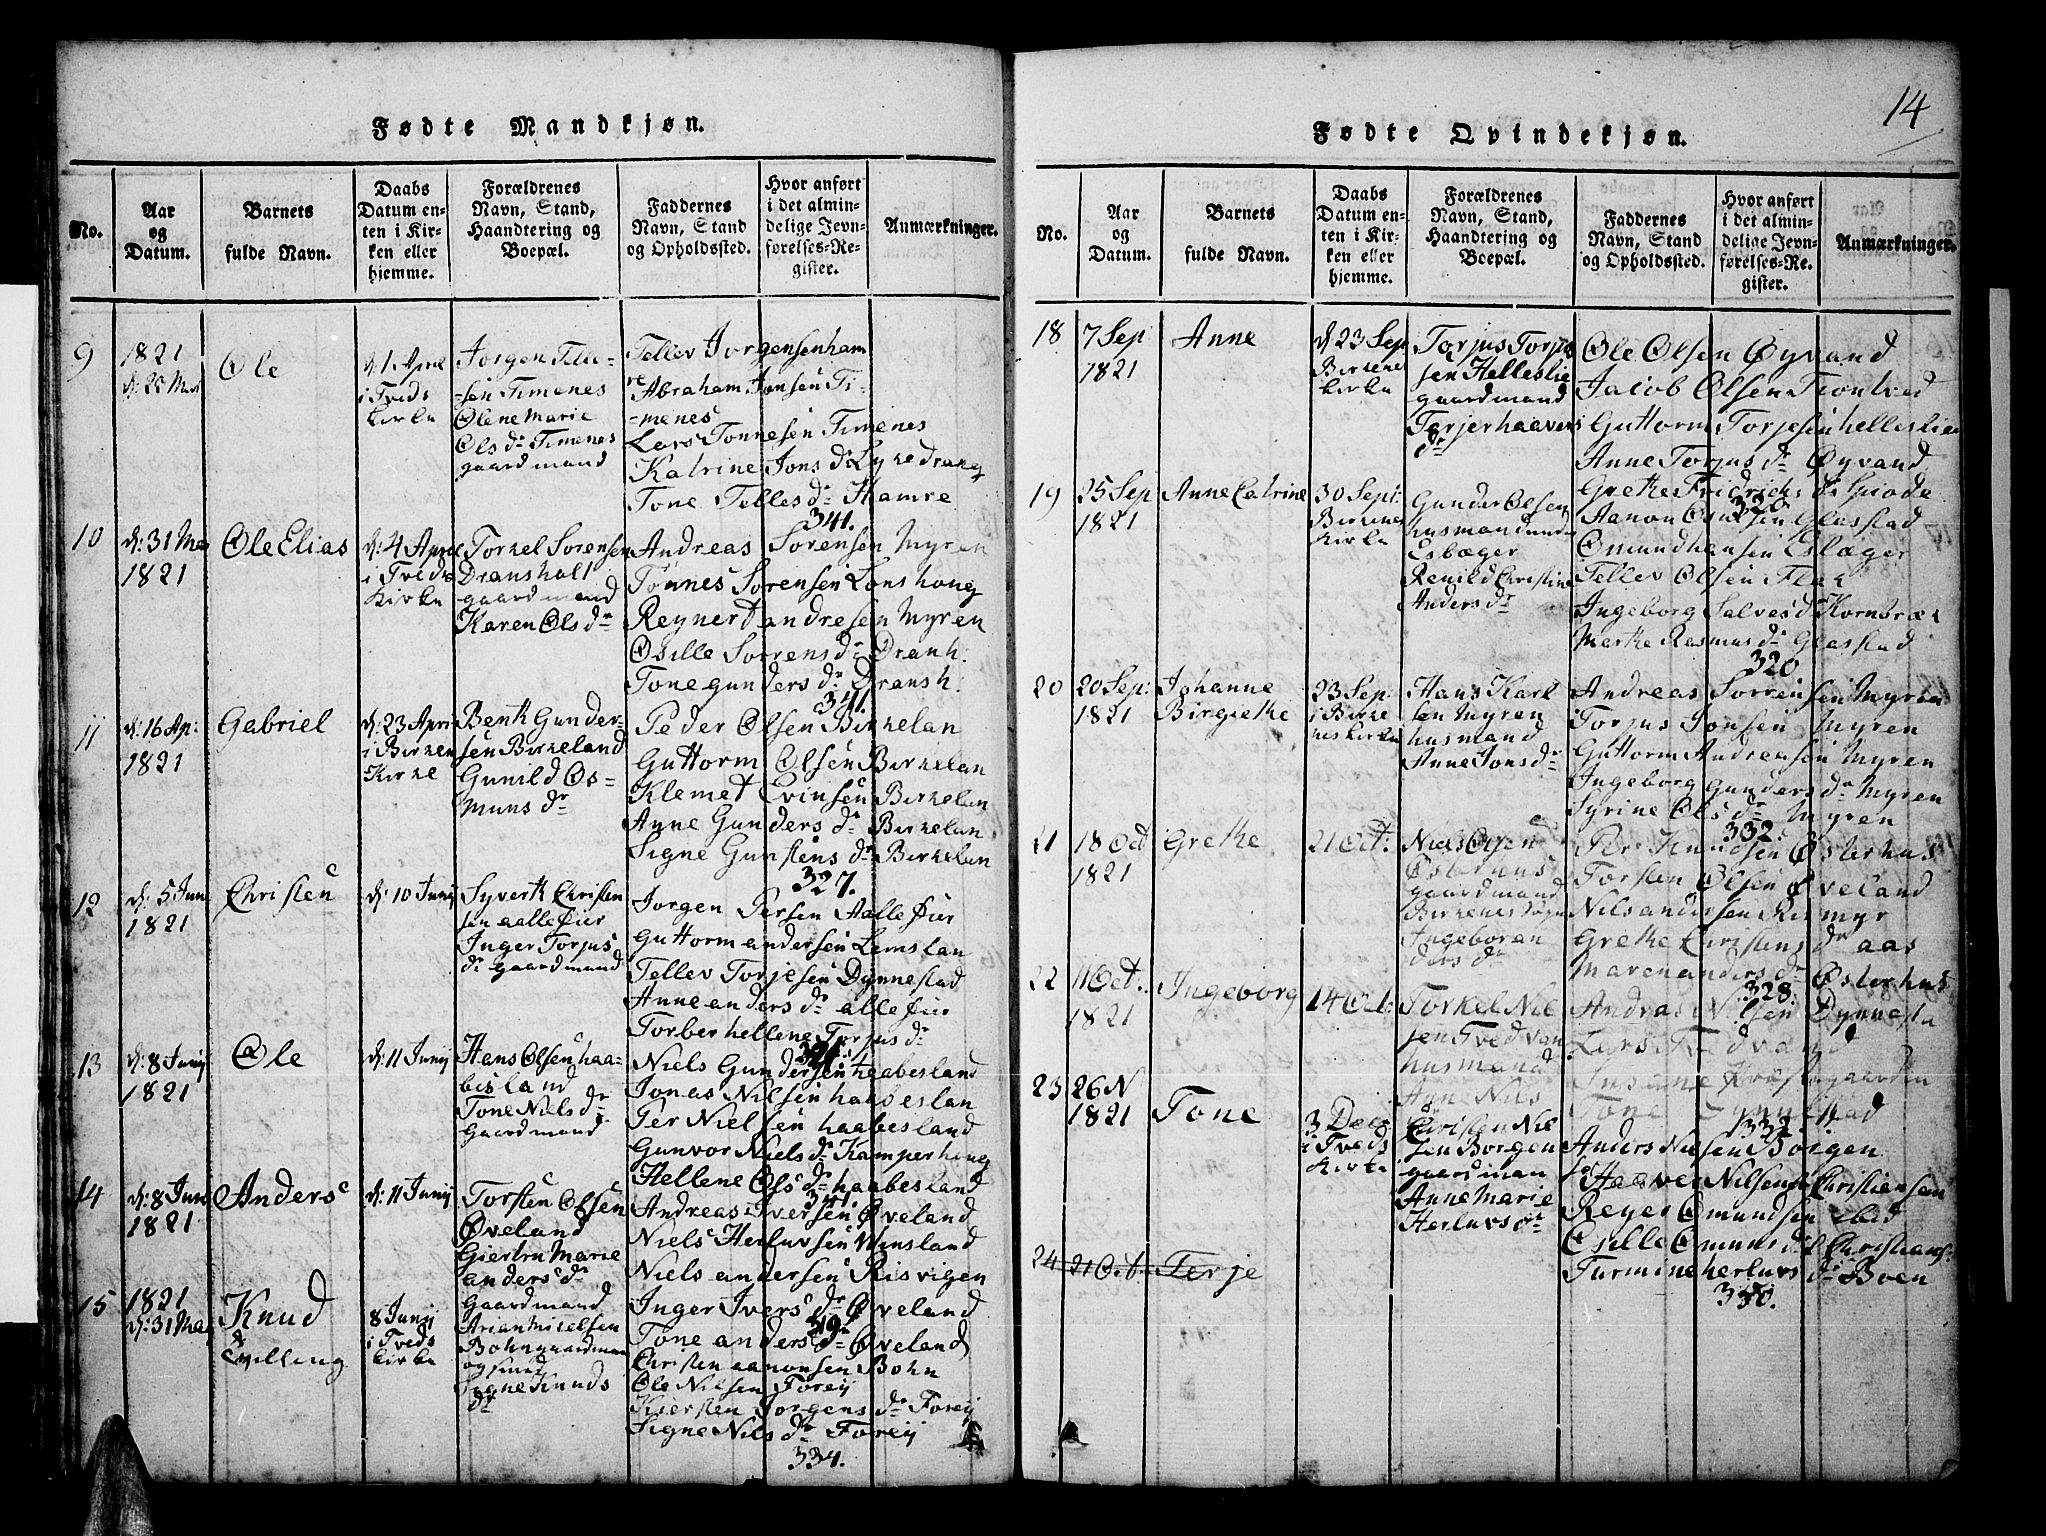 14
Fødte Mandkjøn.
No.
Aar
og
Datum.
Barnets
fulde Navn.
Daabs
Datum en-
ten i Kir-
ken eller
hjemme.
Forældrenes
Navn, Stand,
Haandtering og
Boepæl.
Faddernes
Navn, Stand
og Opholdssted.
Hvor anført
i det almin-
delige Jevn-
førelses-Re-
gister.
Anmærkninger.
9
1821
Ole
d: 1 April
i Tveds
kirke
Jorgen
Timenes
Olene Marie
Ols dr Timenes
gaardmand
Tellev Jorgensen ham
re
Abraham Jonsen Ti-
-menes
Lars Tonnesen Timenes
Katrine Jons dr
Tone Telles dr Hamre
341.
10
d: 31
1821
Ole Elias
d: 4
i Tveds
Kirke
Torkel Sorensen
Dransholt
gaardmand
Karen Ols dr
Andreas Sorensen Myren
Tønnes Sorensen
Reynert andresen Myren
Osille Sorrens dr Dranh:
Tone gunders dr Dransh:
341.
11
d: 16 Ap:
1821
Gabriel
d: 23 Apri
i Birken
Kirke
Benk Gunder-
sen Birkeland
Gunild Os-
muns dr
Peder Olsen Birkelan
Guttorm Olsen Birkelan
Klemet Evinsen Birkelan
Anne Gunders dr Birkelan
Signe Gunstens dr Birkelan
327.
12
d: 5 Juni
1821
Christen
d: 10 Junij
Syvert Christen
sen
Inger Torjus
dr gaardmand
Jorgen Persen
Guttorm andersen
Tellev Torjesen Dynnestad
Anne anders dr
Torber hellene Torjus dr
13
d: 8 Junij
1821
Ole
d: 11 Junij
Hans Olsen haa-
bisland
Tone Niels dr
Gaardmand
Niels Gundersen haabesland
Jonas Nilsen haabeslan
Per Nielsen haabesland
Gunvor Niels dr Kamperhoug
Hellene Ols dr haabesland
14
d: 8 Jun
1821
Anders
d: 11 Junij
Torsten Olsen
Øveland
Giertru Marie
anders dr
Gaardmand
Andreas Iversen Øveland
Niels Herluvsen
Niels andersen Risvigen
Inger Ivers dr Øveland
Tone anders dr Øveland
319
15
1821
d: 31 Ma
Knud
8 Junij
i Tveds
kirke
Bohn gaardman
og smed
Knuds
dr
Christen aanonsen Bohn
Ole Nilsen Foreij
Kiersten Jorgens dr Foreij
Signe Nils dr Foreij
334.
Fødte Qvindekjøn.
No.
Aar
og
Datum.
Barnets
fulde Navn.
Daabs
Datum en-
ten i Kir-
ken eller
hjemme.
Forældrenes
Navn, Stand,
Haandtering og
Boepæl.
Faddernes
Navn, Stand
og Opholdssted.
Hvor anført
i det almin-
delige Jevn-
førelses-Re-
gister.
Anmærkninger.
18
7 Sep
1821
Anne
d 23 Sep
Birkene
kirke
Torjus Torjus
sen Helleslie
gaardmand
dr
Ole Olsen Øyvand
Jacob Olsen Trontved
Guttorm Torjesen helleslien
Anne Torjus dr Øyvand
Grethe Fridrichs dr
19
25 Sep
1821
Anne Catrine
30 Sept:
Birkenes
kirke
Gunder Olsen
husmand
Esbæger
Renild Christine
Anders dr
Aanon Glastad
Omund hansen Esbæger
Tellev Olsen Flak
Ingeborg Salves dr Kornbræk
Merthe Rasmus dr Glastad
320
20
20 Sep:
1821
Johanne
Birgiethe
23 Sep:
i Birke
nes kirke
Hans Karl
sen Myren
husmand
Anne Jons dr
Andreas Sorrensen Myren
Torjus Jonsen Myren
Guttorm Andreasen Myren
Ingeborg Gunders dr Myren
Syrine Ols dr Myren
332
21
18 Oct
1821
Grethe
21 Oct:
Niels
Østerhus
gaardmand
Birkenes Sogn
Ingebor an
ders dr
Per Knudsen Østerhus
Torsten Olsen Øveland
Nils andersen
Grethe Christens dr aas
Maren anders dr Østerhus
328.
22
11 Oct.
1821
Ingeborg
14 Oct.
Torkel Niel
sen Tvedvan
husmand
Ane Nils
dr
Andras Nilsen Dynnesta
Lars Tvedvand
Tone
332
23
26 N
1821
Tone
3 Dec
i Tveds
kirke
Christen Niel
sen Borgen
gaardman
Anne Marie
Herluvs dr
Anders Nielsen Borgen
Haaver Nilsen Christiensen
Reyer Omundsen ibid
Osille Omuns dr Christians:
Turmine herluvs dr Boen
330.
24
21 Oct.
Terje